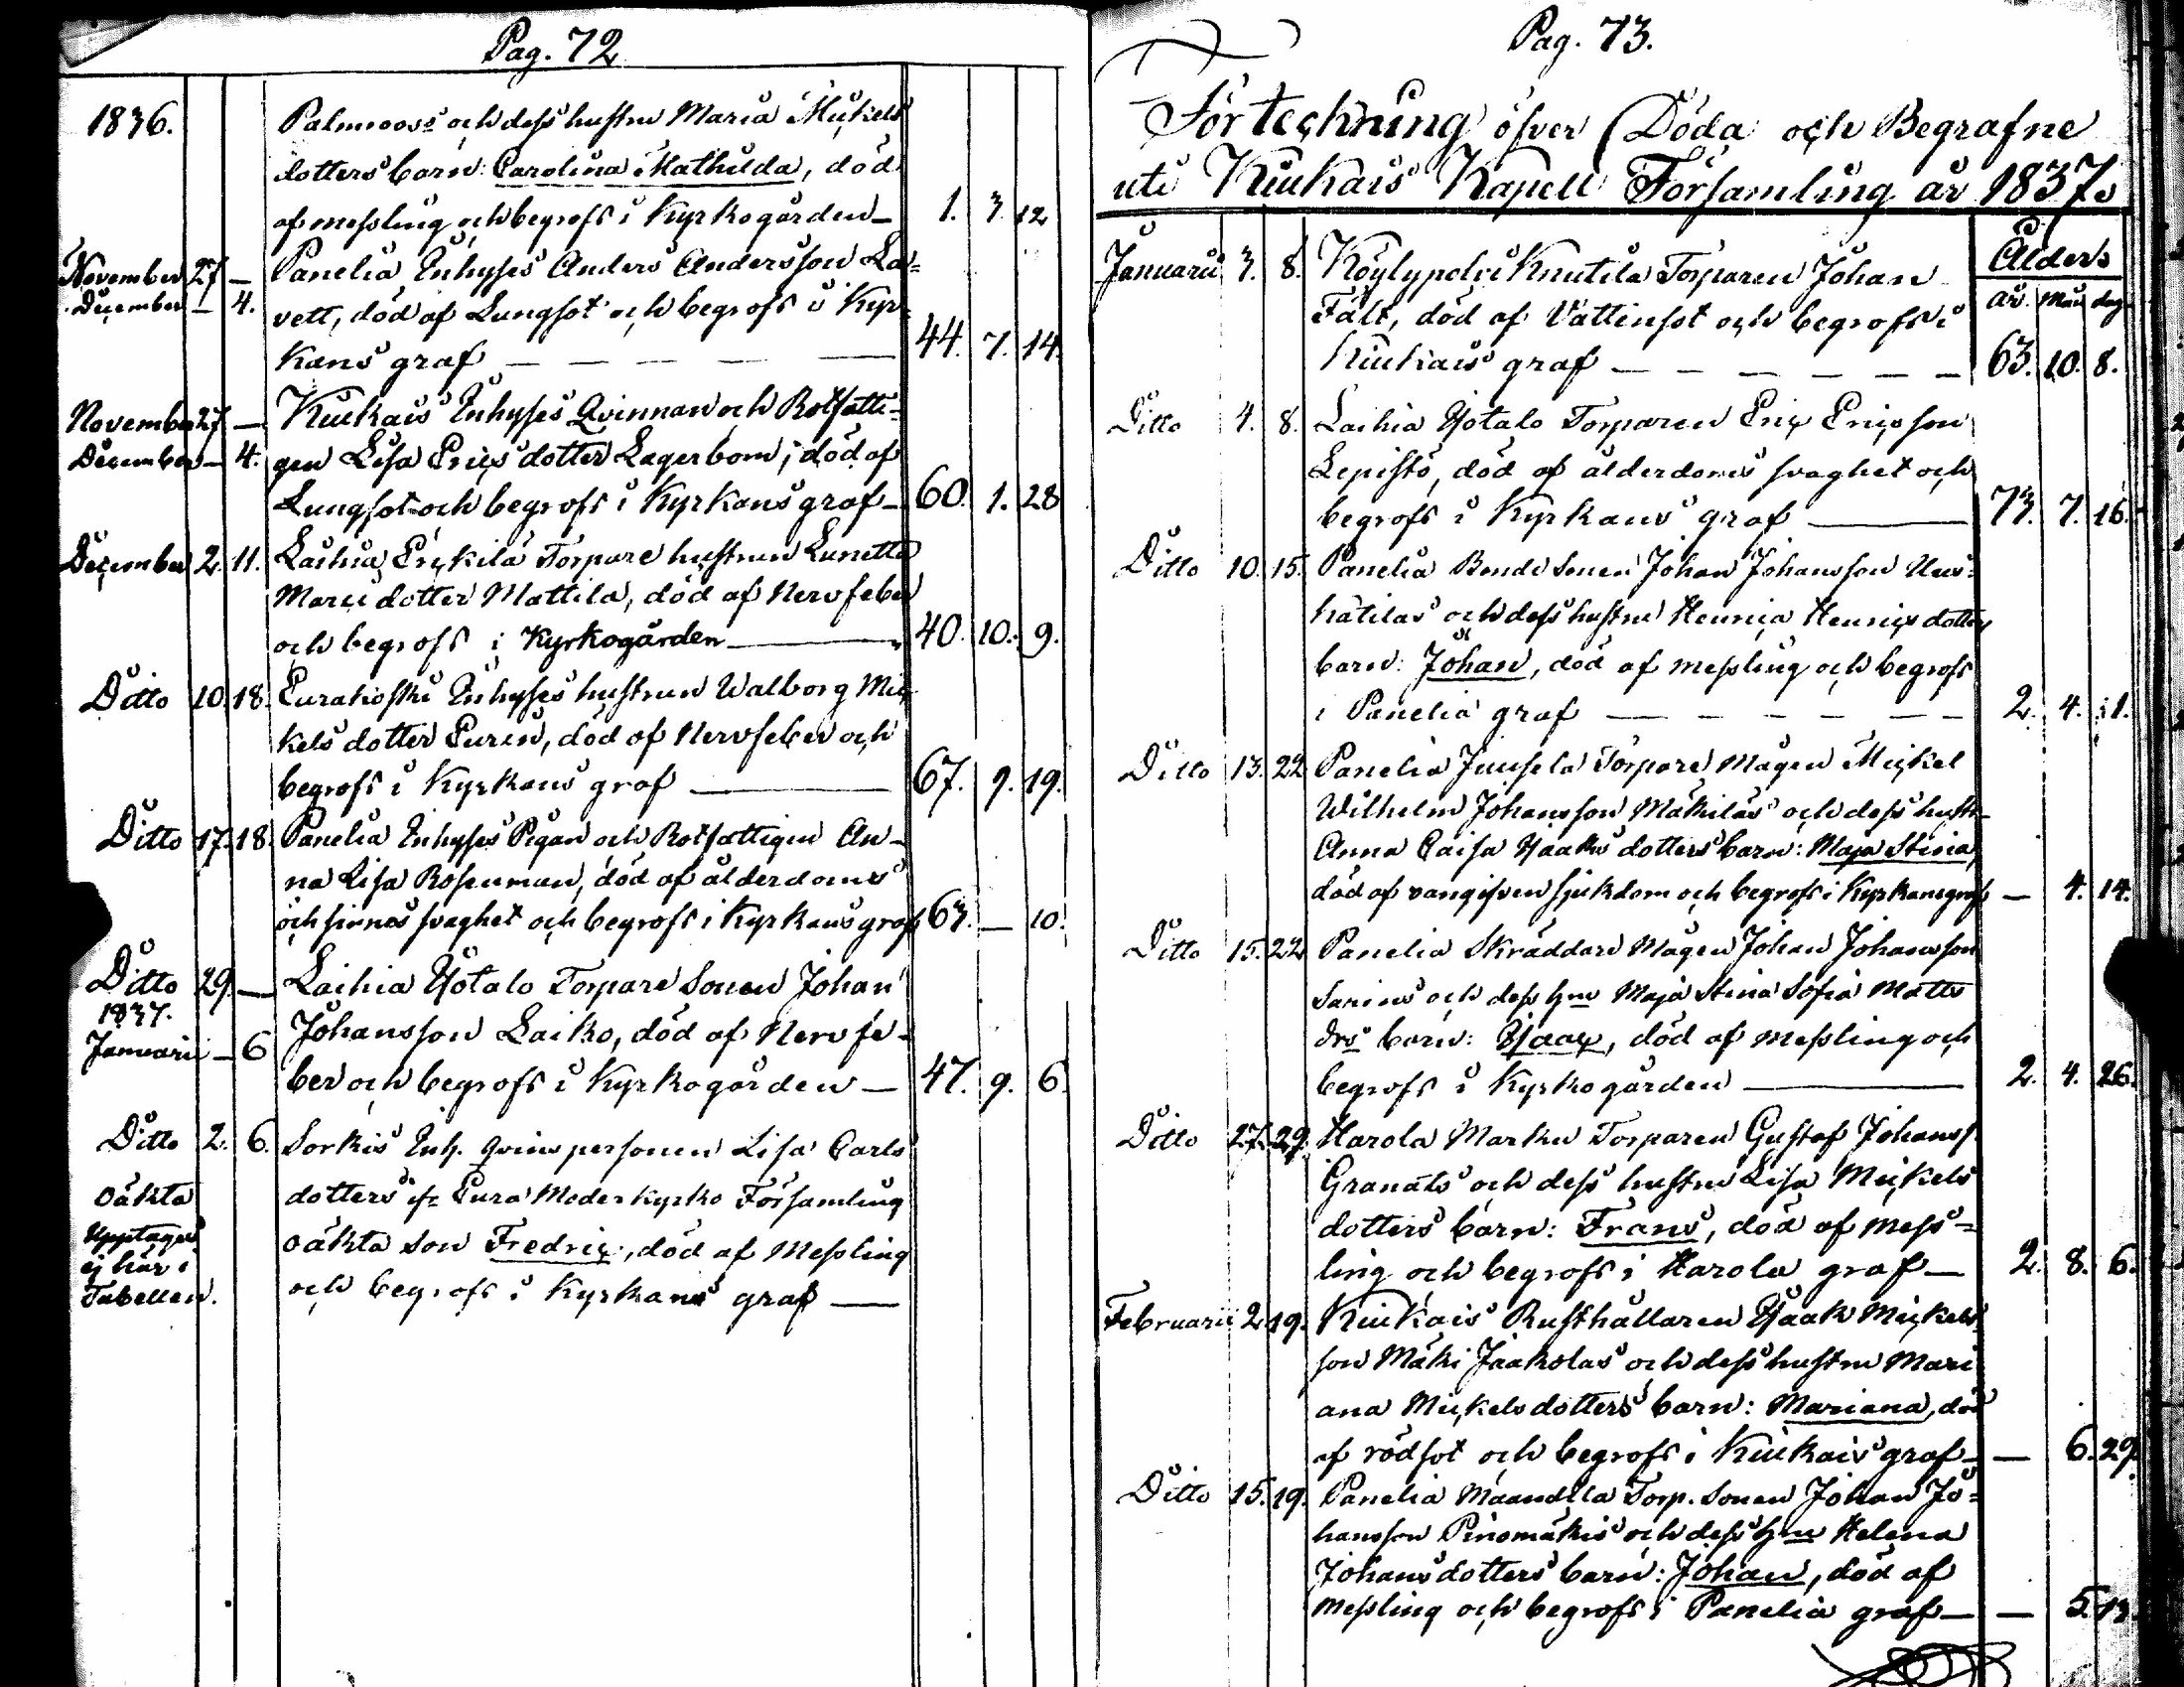 Pag. 72
1836.
Palmroos's och dess hustru Maria Mickels
dotters barn: Carolina Mathilda, död
af messling och begrofs i Kyrkogården — 1. 3. 12
November 27 — Panelia Inhyses Anders Andersson La-
December — 4. vett, död af Lungsot och begrofs i Kyr-
kans graf — 44. 7. 14.
November 27 — Kiukais Inhyses Qvinnan och Rotfatti-
December — 4. gen Lisa Erics dotter Lagerbom, död af
Lungsot och begrofs i Kyrkans graf — 60. 1. 28
December 2. 11. Laihia Erickilä Torpare hustrun Lunetta
Marci dotter Mattila, död af Nervfeber
och begrofs i Kyrkogården — 40. 10. 9.
Ditto 10. 18. Eurakoski Inhyses hustrun Walborg Mic
kels dotter Eurén, död af Nervfeber och
begrofs i Kyrkans graf — 67. 9. 19.
Ditto 17. 18. Panelia Inhyses Pigan och Rotfattigen An-
na Lisa Rosenman, död af ålderdoms
och sinnes svaghet och begrofs i Kyrkans graf 63. — 10.
Ditto 29. — Laihia Yötalo Torpare Sonen Johan
1837.
Januari — 6 Johansson Laiko, död af Nervfe-
ber och begrofs i Kyrkogården — 47. 9. 6.
Ditto 2. 6. Sorkis Inh. qvins personen Lisa Carls
oäkta dotters ifr Eura Moder Kyrko Församling
Upptages oäkta son Fredric, död af Messling
ej här i och begrofs i Kyrkans graf —
Tabellen.
Pag. 73.
Förteckning öfver Döda och Begrafne
uti Kiukais Kapell Församling år 1837.
Ålders
år. Mån dag
Januarii 3. 8. Köylypolvi Knutila Torparen Johan
Fält, död af Vattensot och begrofs i
Kiukais graf — 63. 10. 8.
Ditto 4. 8. Laihia Yötalo Torparen Eric Ericsson
Lepistö, död af ålderdoms svaghet och
begrofs i Kyrkans graf — 73. 7. 16.
Ditto 10. 15. Panelia Bonde Sonen Johan Johansson Uus-
hätilas och dess hustru Henrica Henrics dotters
barn: Johan, död af messling och begrofs
i Panelia graf — 2. 4. 11.
Ditto 13. 22 Panelia Juusela Torpare Mågen Mickel
Wilhelm Johansson Mäkiläs och dess hustr
Anna Caisa Isaaks dotters barn: Maja Stina,
död af oangifven sjukdom och begrofs i Kyrkans graf — 4. 14.
Ditto 15. 22 Panelia Skräddare Mågen Johan Johansson
Sarins och dess hru Maja Stina Sofia Matts
drs barn: Isaac, död af messling och
begrofs i Kyrkogården — 2. 4. 26.
Ditto 27. 29. Harola Marku Torparen Gustaf Johanss.
Granats och dess hustru Lisa Mickels
dotters barn: Frans, död af mess-
ling och begrofs i Harola graf — 2. 8. 6.
Februarii 2 19. Kiukais Rusthållaren Isaak Mickels
son Mäki Jaakolas och dess hustru Mari
ana Mickels dotters barn: Mariana, död
af rödsot och begrofs i Kiukais graf — — 6. 29.
Ditto 15. 19. Panelia Maandela Torp. Sonen Johan Jo-
hansson Pinomäkis och dess hru Helena
Johans dotters barn: Johan, död af
messling och begrofs i Panelia graf — — 5. 13.